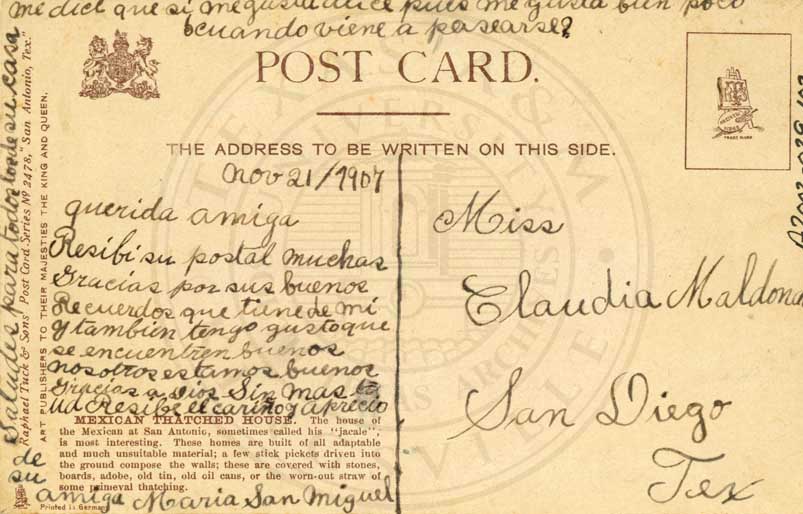 me dice que si me gusta dice pues me gusta bien poco
cuando viene a pasearse?
POST CARD.
THE ADDRESS TO BE WRITTEN ON THIS SIDE.
Nov 21/1907
querida amiga
Resibi su postal muchas
Gracias por sus buenos
Recuerdos que tiene de mi
y tambien tengo gusto que
se encuentren buenos
nosotros estamos buenos
Gracias a Dios Sin mas
Ud Resibe el cariño y aprecio
MEXICAN THATCHED HOUSE. The house of
the Mexican at San Antonio, sometimes called his "jacale",
is most interesting. These homes are built of all adaptable
and much unsuitable material; a few stick pickets driven into
the ground compose the walls; these are covered with stones,
boards, adobe, old tin, old oil cans, or the worn-out straw of
some primeval thatching.
de
su
amiga Maria San Miguel
Printed in Germany
Saludes para todos los de su casa
Raphael Tuck & Sons' Post Card Series Nº 2478, "San Antonio, Tex."
ART PUBLISHERS TO THEIR MAJESTIES THE KING AND QUEEN.
Miss
Claudia Maldona
San Diego
Tex
TRADE MARK
TEXAS A&M UNIVERSITY
KINGSVILLE
ARCHIVES